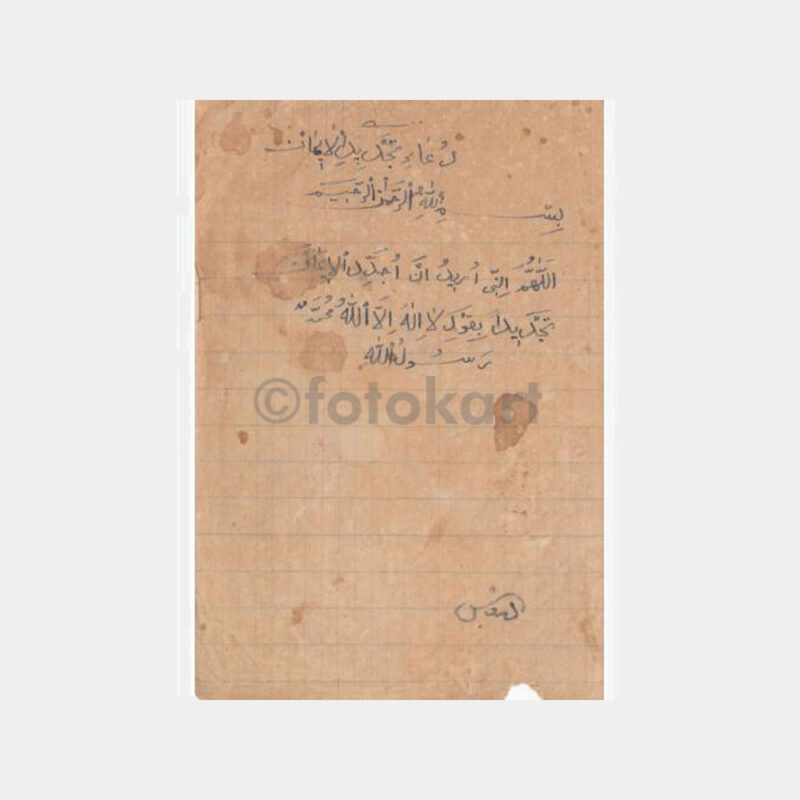 دُعَاءِ تَجْدِيدِ ٱلْإِيمَانْ
بِسْمِ ٱللَّهِ ٱلرَّحْمَنِ ٱلرَّحِيمِ
اَللَّهُمَّ اِنِّى اُرِيدُ اَنْ اُجَدِّدَ ٱلْاِيمَانَ
تَجْدِيدًا بِقَوْلِ لَا اِلَهَ اِلَّا ٱللَّهُ مُحَمَّدٌ
رَسُولُ ٱللَّه
©fotokart